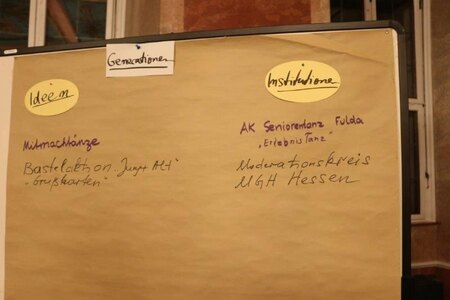 Generationen
Ideen
Institutionen
Mitmachtänze
Bastelaktion „Jung + Alt"
„Grußkarten"
AK Seniorentanz Fulda
„ErlebnisTanz"
Moderationskreis
MGH Hessen